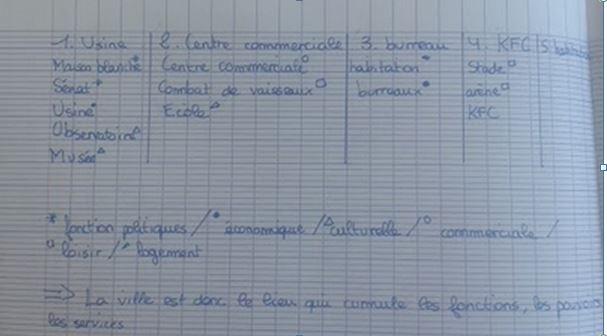 1. Usine | 2. Centre commerciale | 3. bureau | 4. KFC | 5. habitation
Maison blanche* | Centre commerciale° | habitation^ | Stade□
Sénat* | Combat de vaisseaux□ | bureaux• | arène□
Usine• | Ecole△ | KFC
Observatoire△
Musée△
* fonction politiques / • économique / △ culturelle / ° commerciale /
□ loisir / ^ logement
=> La ville est donc le lieu qui cumule les fonctions, les pouvoirs
les services